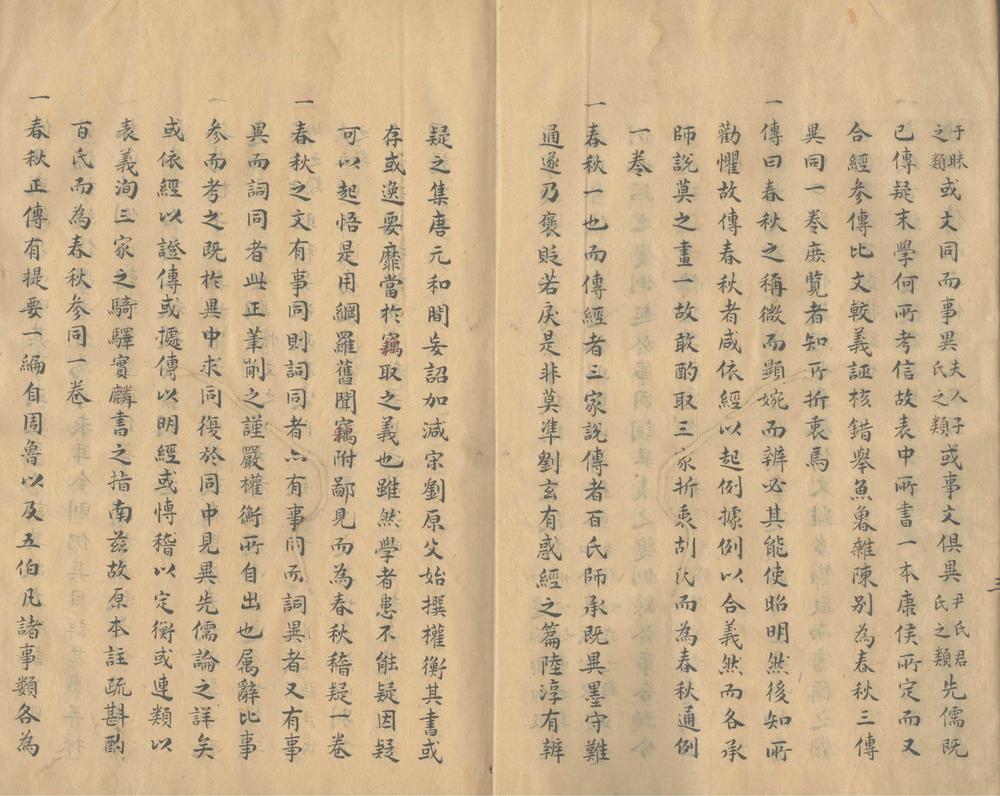 于昧之類或文同而事異夫人子氏之類或事文俱異尹氏君氏之類先儒既
已傳疑末學何所考信故表中所書一本唐侯所定而又
合經參傳比文較義誣核錯舉魚魯雜陳別為春秋三傳
異同一卷庶覽者知所折衷焉
一傳曰春秋之稱微而顯婉而辨必其能使昭明然後知所
勸懼故傳春秋者咸依經以起例據例以合義然而各承
師說莫之畫一故敢酌取三家折衷胡氏而為春秋通例
一卷
一春秋一也而傳經者三家說傳者百氏師承既異墨守難
通遂乃褒貶若戾是非莫準劉玄有惑經之篇陸淳有辨
疑之集唐元和間妄詔加減宋劉原父始撰權衡其書或
存或逸要靡當於竊取之義也雖然學者患不能疑因疑
可以起悟是用網羅舊聞竊附鄙見而為春秋稽疑一卷
一春秋之文有事同則詞同者亦有事同而詞異者又有事
異而詞同者此正筆削之謹嚴權衡所自出也属辭比事
參而考之既於異中求同復於同中見異先儒論之詳矣
或依經以證傳或據傳以明經或慱稽以定衡或連類以
表義洵三家之騎驛實麟書之指南茲故原本註疏斟酌
百氏而為春秋參同一卷
一春秋正傳有提要一編自周魯以及五伯凡諸事類各為